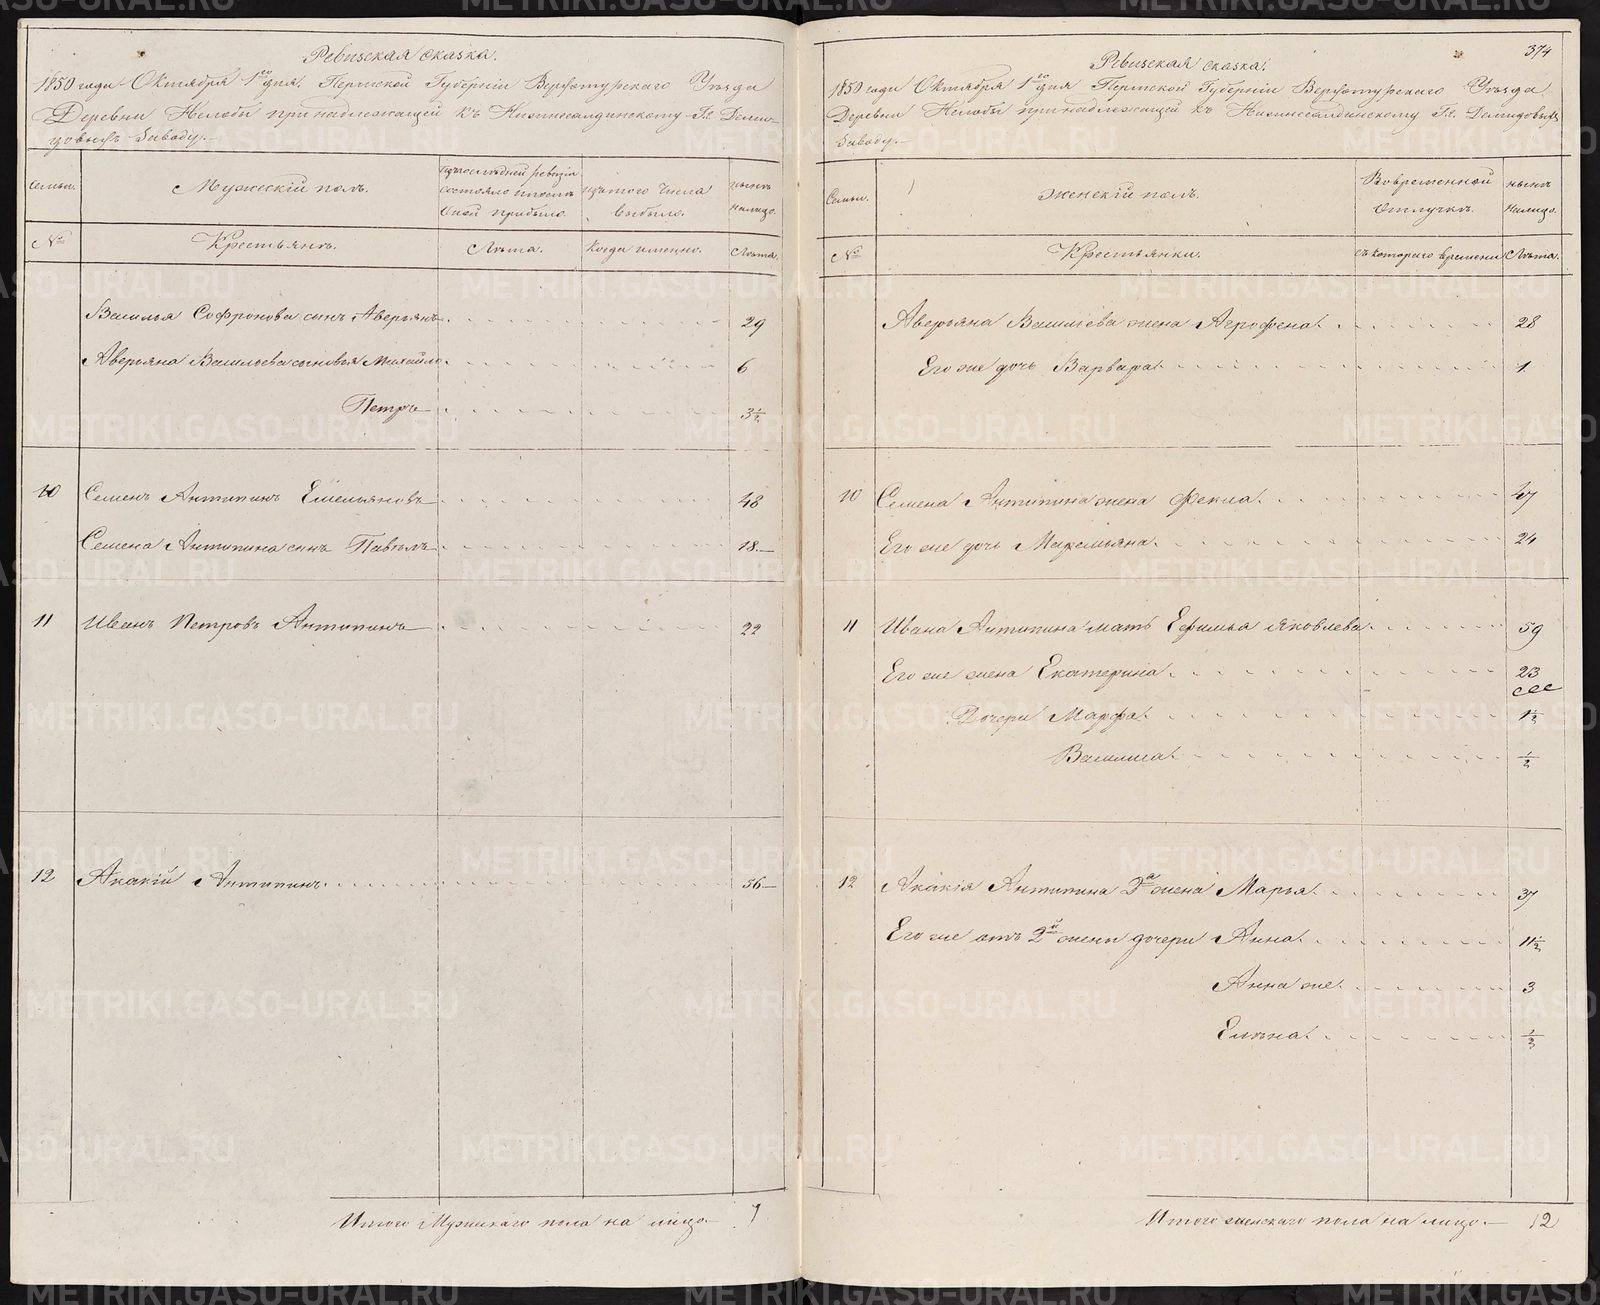 Ревизская сказка.
1850 года Октября 1го дня. Пермской Губерніи Верхотурскаго Уѣзда
Деревни Нелобы принадлежащей къ Нижнесалдинскому Гг. Демидо-
довыхъ Заводу.
Семьи.
Мужескій полъ.
состояло и послѣ
Оной прибыло.
изъ того числа
выбыло.
нынѣ
налицо.
№
Крестьянъ.
Лѣта.
Когда именно.
Лѣта.
Василья Софронова сынъ Аверьянъ 29
Аверьяна Васильева сыновья Михайло 6
Петръ 3½
10 Семенъ Антипинъ Емельяновъ 48
Семена Антипина сынъ Павелъ 18
11 Иванъ Петровъ Антипинъ 22
12 Акакій Антипинъ. 56
Итого Мужскаго пола на лицо 7
374
Ревизская сказка.
1850 года Октября 1го дня Пермской Губерніи Верхотурскаго Уѣзда
Деревни Нелобы принадлежащей къ Нижнесалдинскому Гг. Демидовыхъ
Заводу.
Семьи.
Женскій полъ.
Во временной
отлучкѣ.
нынѣ
налицо.
№
Крестьянки.
съ котораго времени
Лѣта.
Аверьяна Васильева жена Агрофена 28
Его же дочь Варвара 1
10 Семена Антипина жена Фекла 47
Его же дочь Маремьяна. 24
11 Ивана Антипина мать Ефимья Яковлева 59
Его же жена Екатерина 23
Дочери Марфа 1½
Василиса ½
12 Акакія Антипина 2я жена Марья 37
Его же отъ 2й жены дочери Анна 11½
Анна же 3
Елѣна ½
Итого женскаго пола на лицо. 12
METRIKI.GASO-URAL.RU